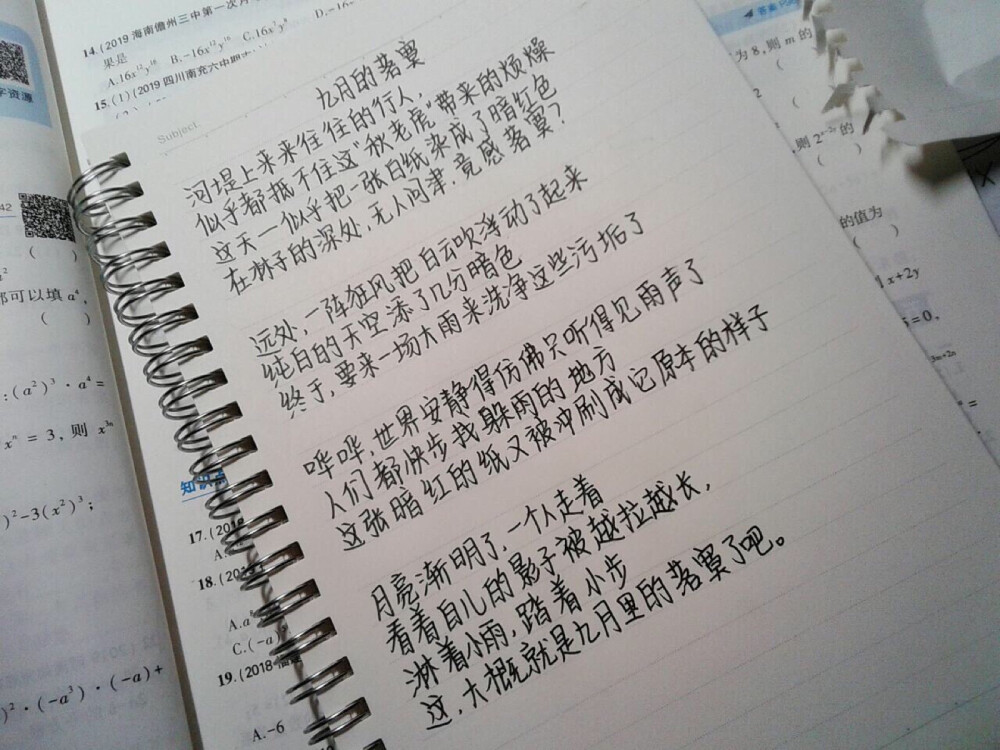 字资源
42
都可以填 a⁴,
:(a²)³·a⁴=
xⁿ=3,则 x³ⁿ
)²-3(x²)³;
)²·(-a³)·(-a)+
14.(2019 海南儋州三中第一次月
果是
A.16x¹²y¹⁶ B.-16x¹²y¹⁶ C.16x⁷y⁸ D.-16
15.(1)(2019 四川南充六中期
Subject
九月的落寞
河堤上来来往往的行人,
似乎都抵不住这"秋老虎"带来的烦燥
这天一似乎把一张白纸染成了暗红色
在林子的深处,无人问津,竟感落寞?
远处,一阵狂风把白云吹浮动了起来
纯白的天空添了几分暗色
终于,要来一场大雨来洗净这些污垢了
哗哗,世界安静得仿佛只听得见雨声了
人们都快步找躲雨的地方
这张暗红的纸又被冲刷成它原本的样子
月亮渐明了,一个人走着
看着自己的影子被越拉越长,
淋着小雨,踏着小步
这,大概就是九月里的落寞了吧。
知识点
17.(201
A.
18.(20
A.a
C.(-a)
19.(2018·
A.-6
答案
为 8,则 m 的
的值为
x+2y
=0,